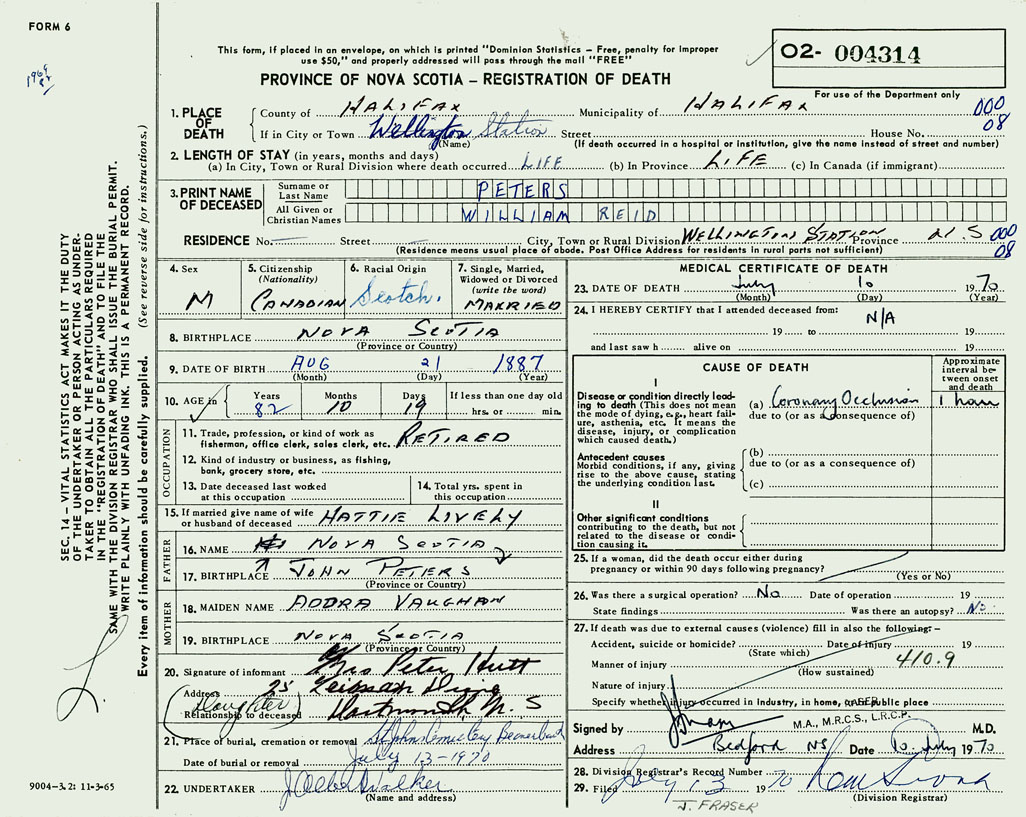 FORM 6
This form, if placed in an envelope, on which is printed "Dominion Statistics – Free, penalty for improper
use $50," and properly addressed will pass through the mail "FREE"
PROVINCE OF NOVA SCOTIA – REGISTRATION OF DEATH
02- 004314
For use of the Department only
1. PLACE OF DEATH
County of HALIFAX Municipality of HALIFAX 000
If in City or Town Wellington Station Street House No. 08
(Name) (If death occurred in a hospital or institution, give the name instead of street and number)
2. LENGTH OF STAY (in years, months and days)
(a) In City, Town or Rural Division where death occurred LIFE (b) In Province LIFE (c) In Canada (if immigrant)
3. PRINT NAME OF DECEASED
Surname or Last Name PETERS
All Given or Christian Names WILLIAM REID
RESIDENCE No. Street City, Town or Rural Division WELLINGTON STATION Province N.S 000
(Residence means usual place of abode. Post Office Address for residents in rural parts not sufficient) 08
4. Sex M
5. Citizenship (Nationality) CANADIAN
6. Racial Origin Scotch.
7. Single, Married, Widowed or Divorced (write the word) MARRIED
8. BIRTHPLACE NOVA SCOTIA
(Province or Country)
9. DATE OF BIRTH AUG 21 1887
(Month) (Day) (Year)
10. AGE in Years 82 Months 10 Days 19 If less than one day old hrs. or min.
OCCUPATION
11. Trade, profession, or kind of work as fisherman, office clerk, sales clerk, etc. RETIRED
12. Kind of industry or business, as fishing, bank, grocery store, etc.
13. Date deceased last worked at this occupation
14. Total yrs. spent in this occupation
15. If married give name of wife or husband of deceased HATTIE LIVELY
FATHER
16. NAME NOVA SCOTIA
17. BIRTHPLACE JOHN PETERS
(Province or Country)
MOTHER
18. MAIDEN NAME ADDRA VAUGHAN
19. BIRTHPLACE NOVA SCOTIA
(Province or Country)
20. Signature of informant Mrs Peter Hutt
Address 25
Relationship to deceased Daughter Dartmouth N. S
21. Place of burial, cremation or removal St Johns
Date of burial or removal July 13-1970
22. UNDERTAKER J Albert Walker
(Name and address)
MEDICAL CERTIFICATE OF DEATH
23. DATE OF DEATH July 10 1970
(Month) (Day) (Year)
24. I HEREBY CERTIFY that I attended deceased from:
N/A
19 to 19
and last saw h alive on 19
CAUSE OF DEATH
Approximate interval between onset and death
I
Disease or condition directly leading to death (This does not mean the mode of dying, e.g., heart failure, asthenia, etc. It means the disease, injury, or complication which caused death.)
(a) Coronary Occlusion 1 hour
due to (or as a consequence of)
Antecedent causes
Morbid conditions, if any, giving rise to the above cause, stating the underlying condition last.
(b)
due to (or as a consequence of)
(c)
II
Other significant conditions
contributing to the death, but not related to the disease or condition causing it.
25. If a woman, did the death occur either during
pregnancy or within 90 days following pregnancy?
(Yes or No)
26. Was there a surgical operation? No Date of operation 19
State findings Was there an autopsy? No
27. If death was due to external causes (violence) fill in also the following:–
Accident, suicide or homicide? Date of injury 19
(State which)
Manner of injury 410.9
(How sustained)
Nature of injury
Specify whether injury occurred in industry, in home, or public place
Signed by M.A., M.R.C.S., L.R.C.P. M.D.
Address Bedford NS Date 10 July 1970
28. Division Registrar's Record Number
29. Filed July 13 1970
(Division Registrar)
J. FRASER
SEC. 14 – VITAL STATISTICS ACT MAKES IT THE DUTY
OF THE UNDERTAKER OR PERSON ACTING AS UNDER-
TAKER TO OBTAIN ALL THE PARTICULARS REQUIRED
IN THE "REGISTRATION OF DEATH" AND TO FILE THE
SAME WITH THE DIVISION REGISTRAR WHO SHALL ISSUE THE BURIAL PERMIT.
WRITE PLAINLY WITH UNFADING INK. THIS IS A PERMANENT RECORD.
Every item of information should be carefully supplied. (See reverse side for instructions.)
9004-3.2: 11-3-65